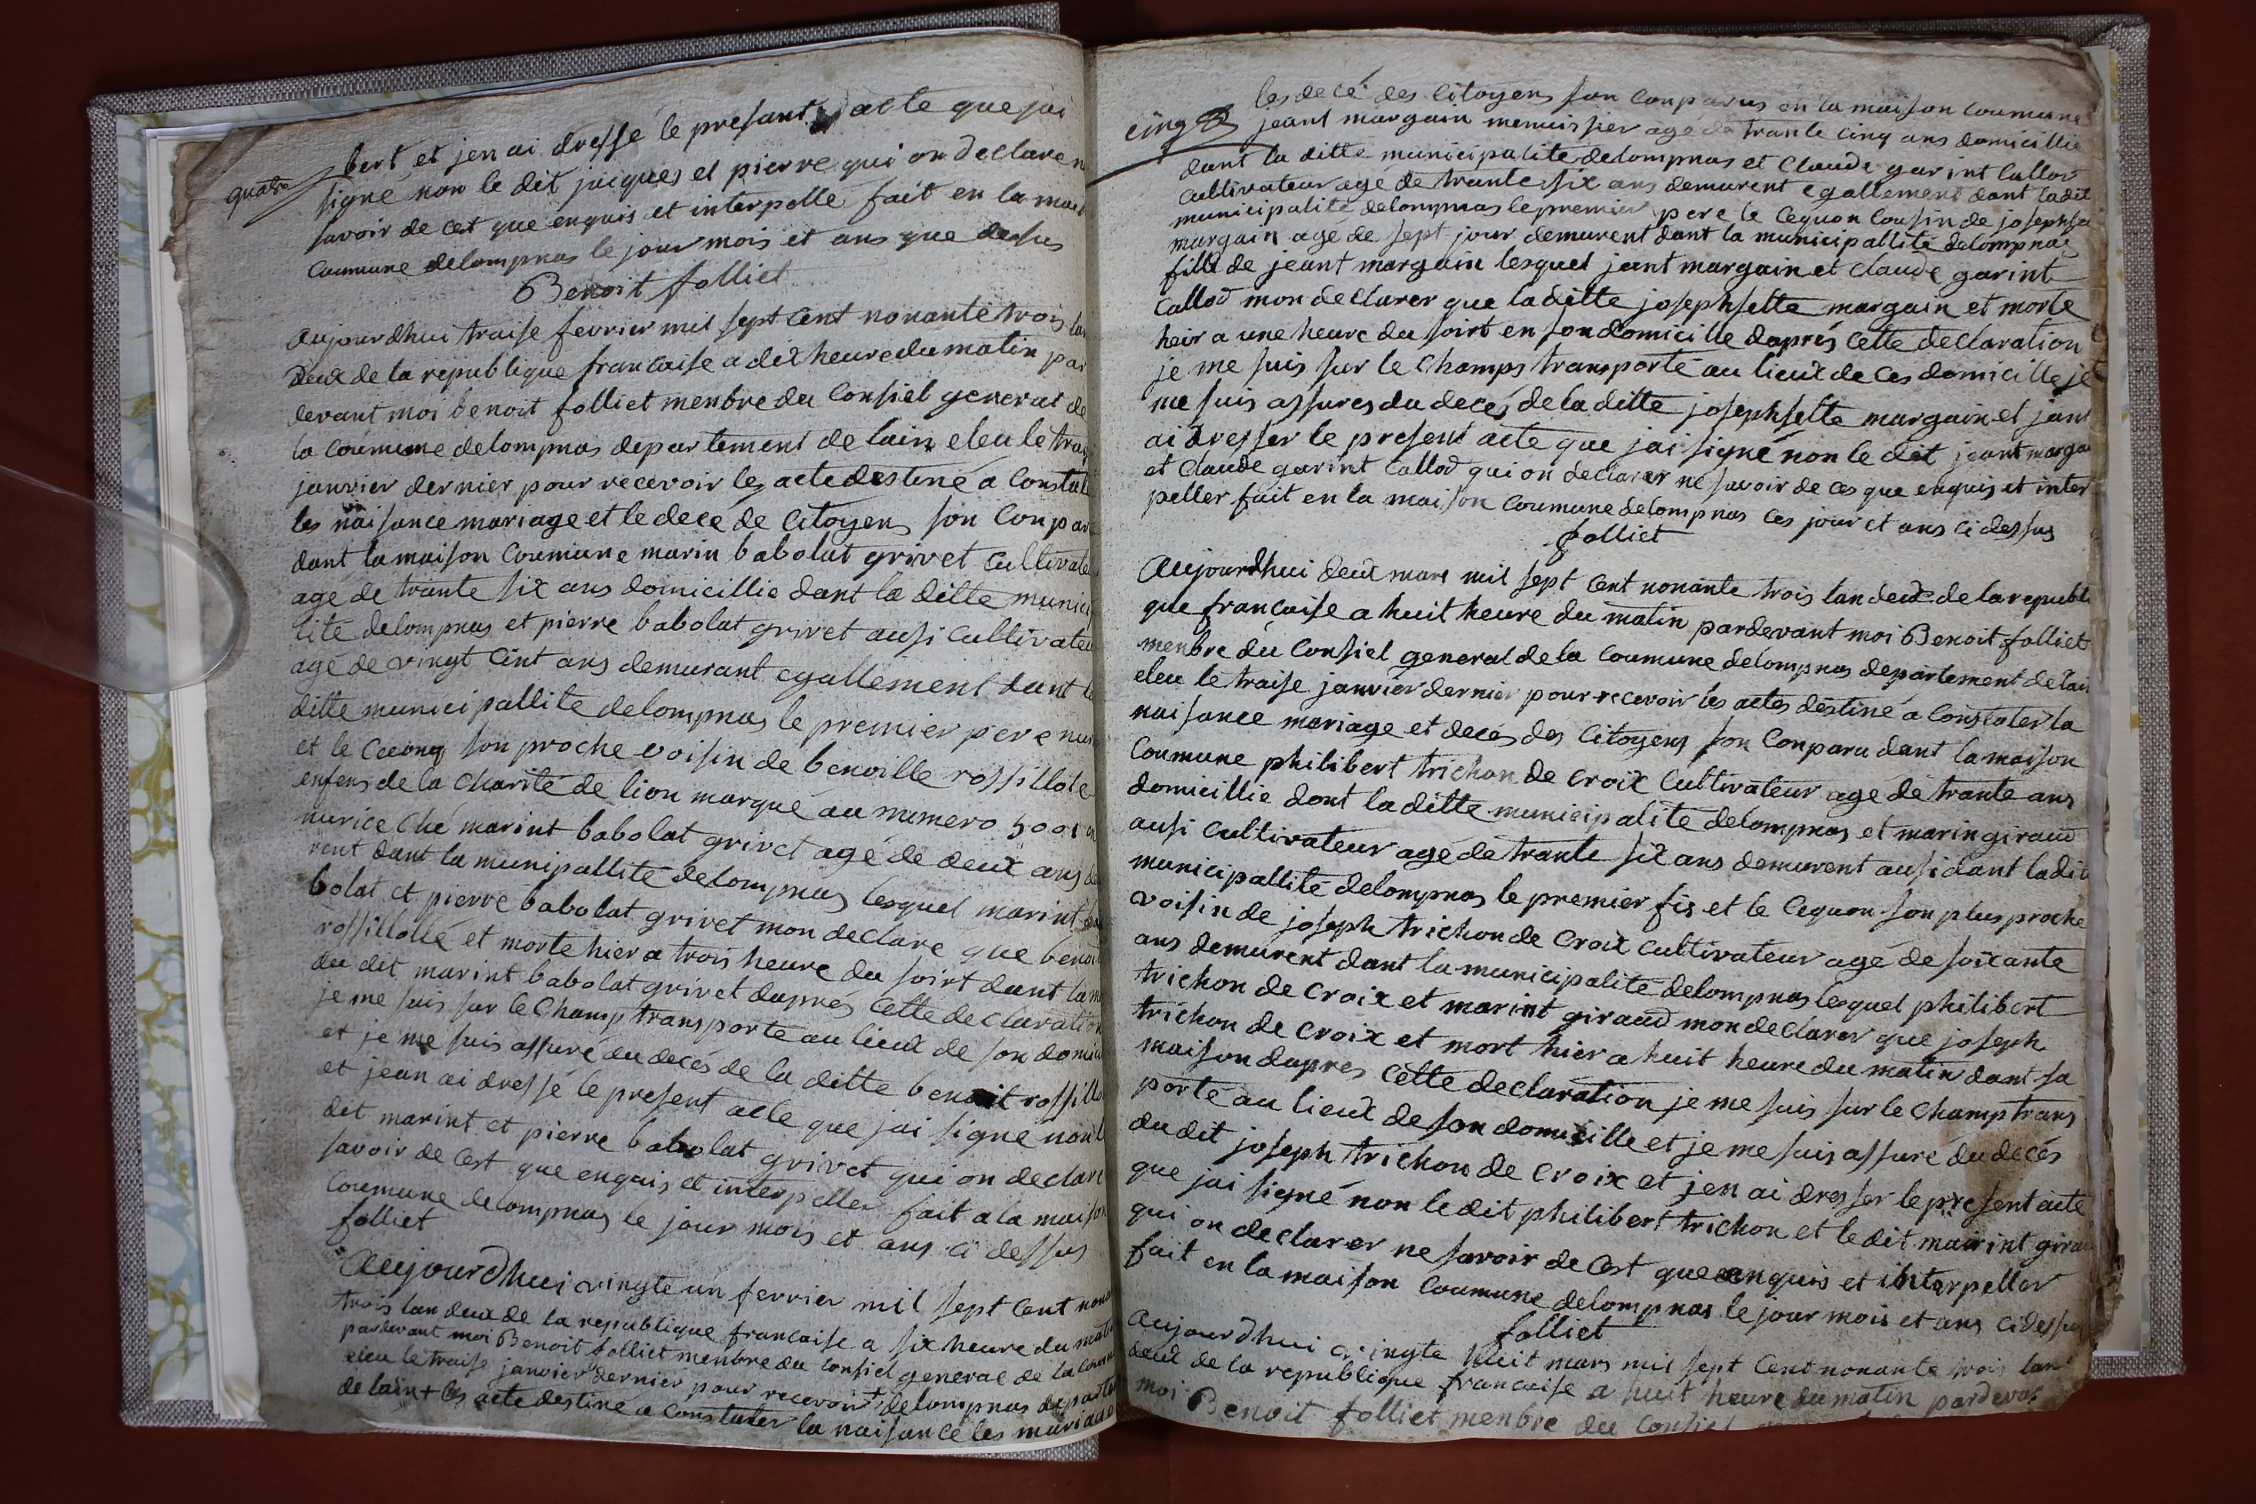 quatre
bert et jen ai dressé le presant acte que jai
signe non le dit jacques et pierre qui on declare n
savoir de cet que enquis et interpelle fait en la mais
coumune delompnas le jour mois et ans que desus
Benoit folliet
aujourdhui traise fevrier mil sept cent nonante trois lan
deux de la republique francaise a dix heure du matin par
devant moi benoit folliet menbre du Consiel general de
la coumune delompnas departement de lain eleu le trais
janvier dernier pour recevoir les acte destiné a Constate
les naisance mariage et le decé de Citoyens son Conpar
dant la maison Coumune marin babolat grivet cultivate
agé de trante six ans domicillie dant la ditte munici
lité delompnas et pierre babolat grivet ausi cultivateu
agé de vingt cint ans demurant egallement dant la
ditte municipallite delompnas le premier pere nur
et le Ceconq son proche voisin de benoitte rossillole
enfens de la charité de lion marqué au numero 5001
nurice ché marint babolat grivet agé de deux ans de
rent dant la munipallité delompnas lesquel marint
bolat et pierre babolat grivet mon declare que benoi
rossillolle et morte hier a trois heure du soirt dant la m
du dit marint babolat grivet daprés cette declaration
je me suis sur le Champ transporte au lieux de son domici
et je me suis assuré du decés de la ditte benoit rossillo
et jean ai dressé le present acte que jai signe non l
dit marint et pierre babolat grivet qui on declare
savoir de cest que enquis et interpeller fait a la maison
Coumune delompnas le jour mois et ans ci dessus
folliet
Aujourdhui vingte un fevrier mil sept cent nona
trois lan deux de la republique francaise a six heure du mati
pardevant moi Benoit folliet menbre du consiel general de la Coum
eleu le traise janvier dernier pour recevoir delompnas departem
de lain + les acte destiné a Constater la naisance les mariage
cinq
les decé des Citoyens son Conparus en la maison Coumune
jeant margain menuissier agé de trante cinq ans domicillie
dant la ditte municipalité delompnas et Claude garint Callod
cultivateur agé de trante six ans demurent egallement dant ladit
municipalité delompnas le premier pere le Cequon Cousin de josephse
margain agé de sept jour demurent dant la municipallité delompnas
fille de jeant margain lesquel jeant margain et Claude garint
Callod mon declarer que laditte josephsette margain et morte
heir a une heure du soirt en son domicille daprés cette declaration
je me suis sur le Champs transporté au lieux de Ces domicille je
me suis assures du decés de la ditte josephsette margain et jant
ai dresser le present acte que jai signé non le dit jeant marga
et Claude garint Callod qui on declarer ne savoir de ces que enquis et inter
peller fait en la maison Coumune delompnas ces jour et ans ci dessus
folliet
Aujourdhui deux mars mil sept cent nonante trois lan deux de la republi
que francaise a huit heure du matin pardevant moi Benoit folliet
menbre du Consiel general de la Coumune delompnas departement de lain
eleu le traise janvier dernier pour recevoir les actes destiné a Constater la
naisance mariage et decés des Citoyens son Conparu dant la maison
Coumune philibert trichon de Croix Cultivateur agé de trante ans
domicillie dont la ditte municipalité delompnas et marin giraud
ausi Cultivateur agé de trante six ans demurent ausi dant ladit
municipallité delompnas le premier fis et le Cequon son plus proche
voisin de joseph trichon de Croix cultivateur agé de soixante
ans demurent dant la municipalité delompnas lesquel philibert
trichon de Croix et marint giraud mon declarer que joseph
trichon de Croix et mort hier a huit heure du matin dant sa
maison dapres cette declaration je me suis sur le champ trans
porté au lieux de son domicille et je me suis assuré du decés
du dit joseph trichon de Croix et jen ai dresser le present acte
que jai signé non le dit philibert trichon et le dit mairint girau
qui on declarer ne savoir de Cest que enquis et interpeller
fait en la maison Coumune delompnas le jour mois et ans ci dessus
folliet
Aujourdhui vingte huit mars mil sept Cent nonante trois lant
deux de la republique francaise a huit heure du matin pardevant
moi Benoit folliet menbre du Consiel